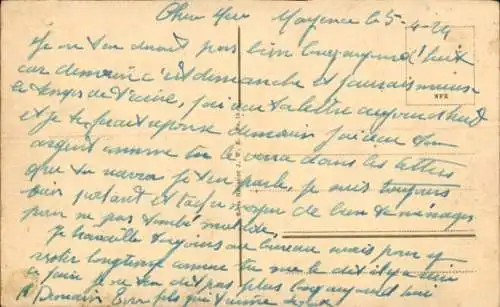 Cher Mere Mayence le 5-4-24
Je ne t'en direz pas bien long aujourd'huit
car demain c'est dimanche et j'aurais mieux
le temps de t'écrire, j'ai eu ta lettre aujourd'hui
et je te ferait réponse demain j'ai eu ton
argent comme tu le verra dans les lettres
que tu aura je t'en parle, je suis toujours
bien portant et tâche moyen de bien te ménager
pour ne pas tombé malade.
Je travaille toujours au bureau mais pour y
rester longtemps comme tu me le dit il y a rien
à faire je ne t'en dit pas plus long aujourd'hui
A Demain ton fils qui t'aime